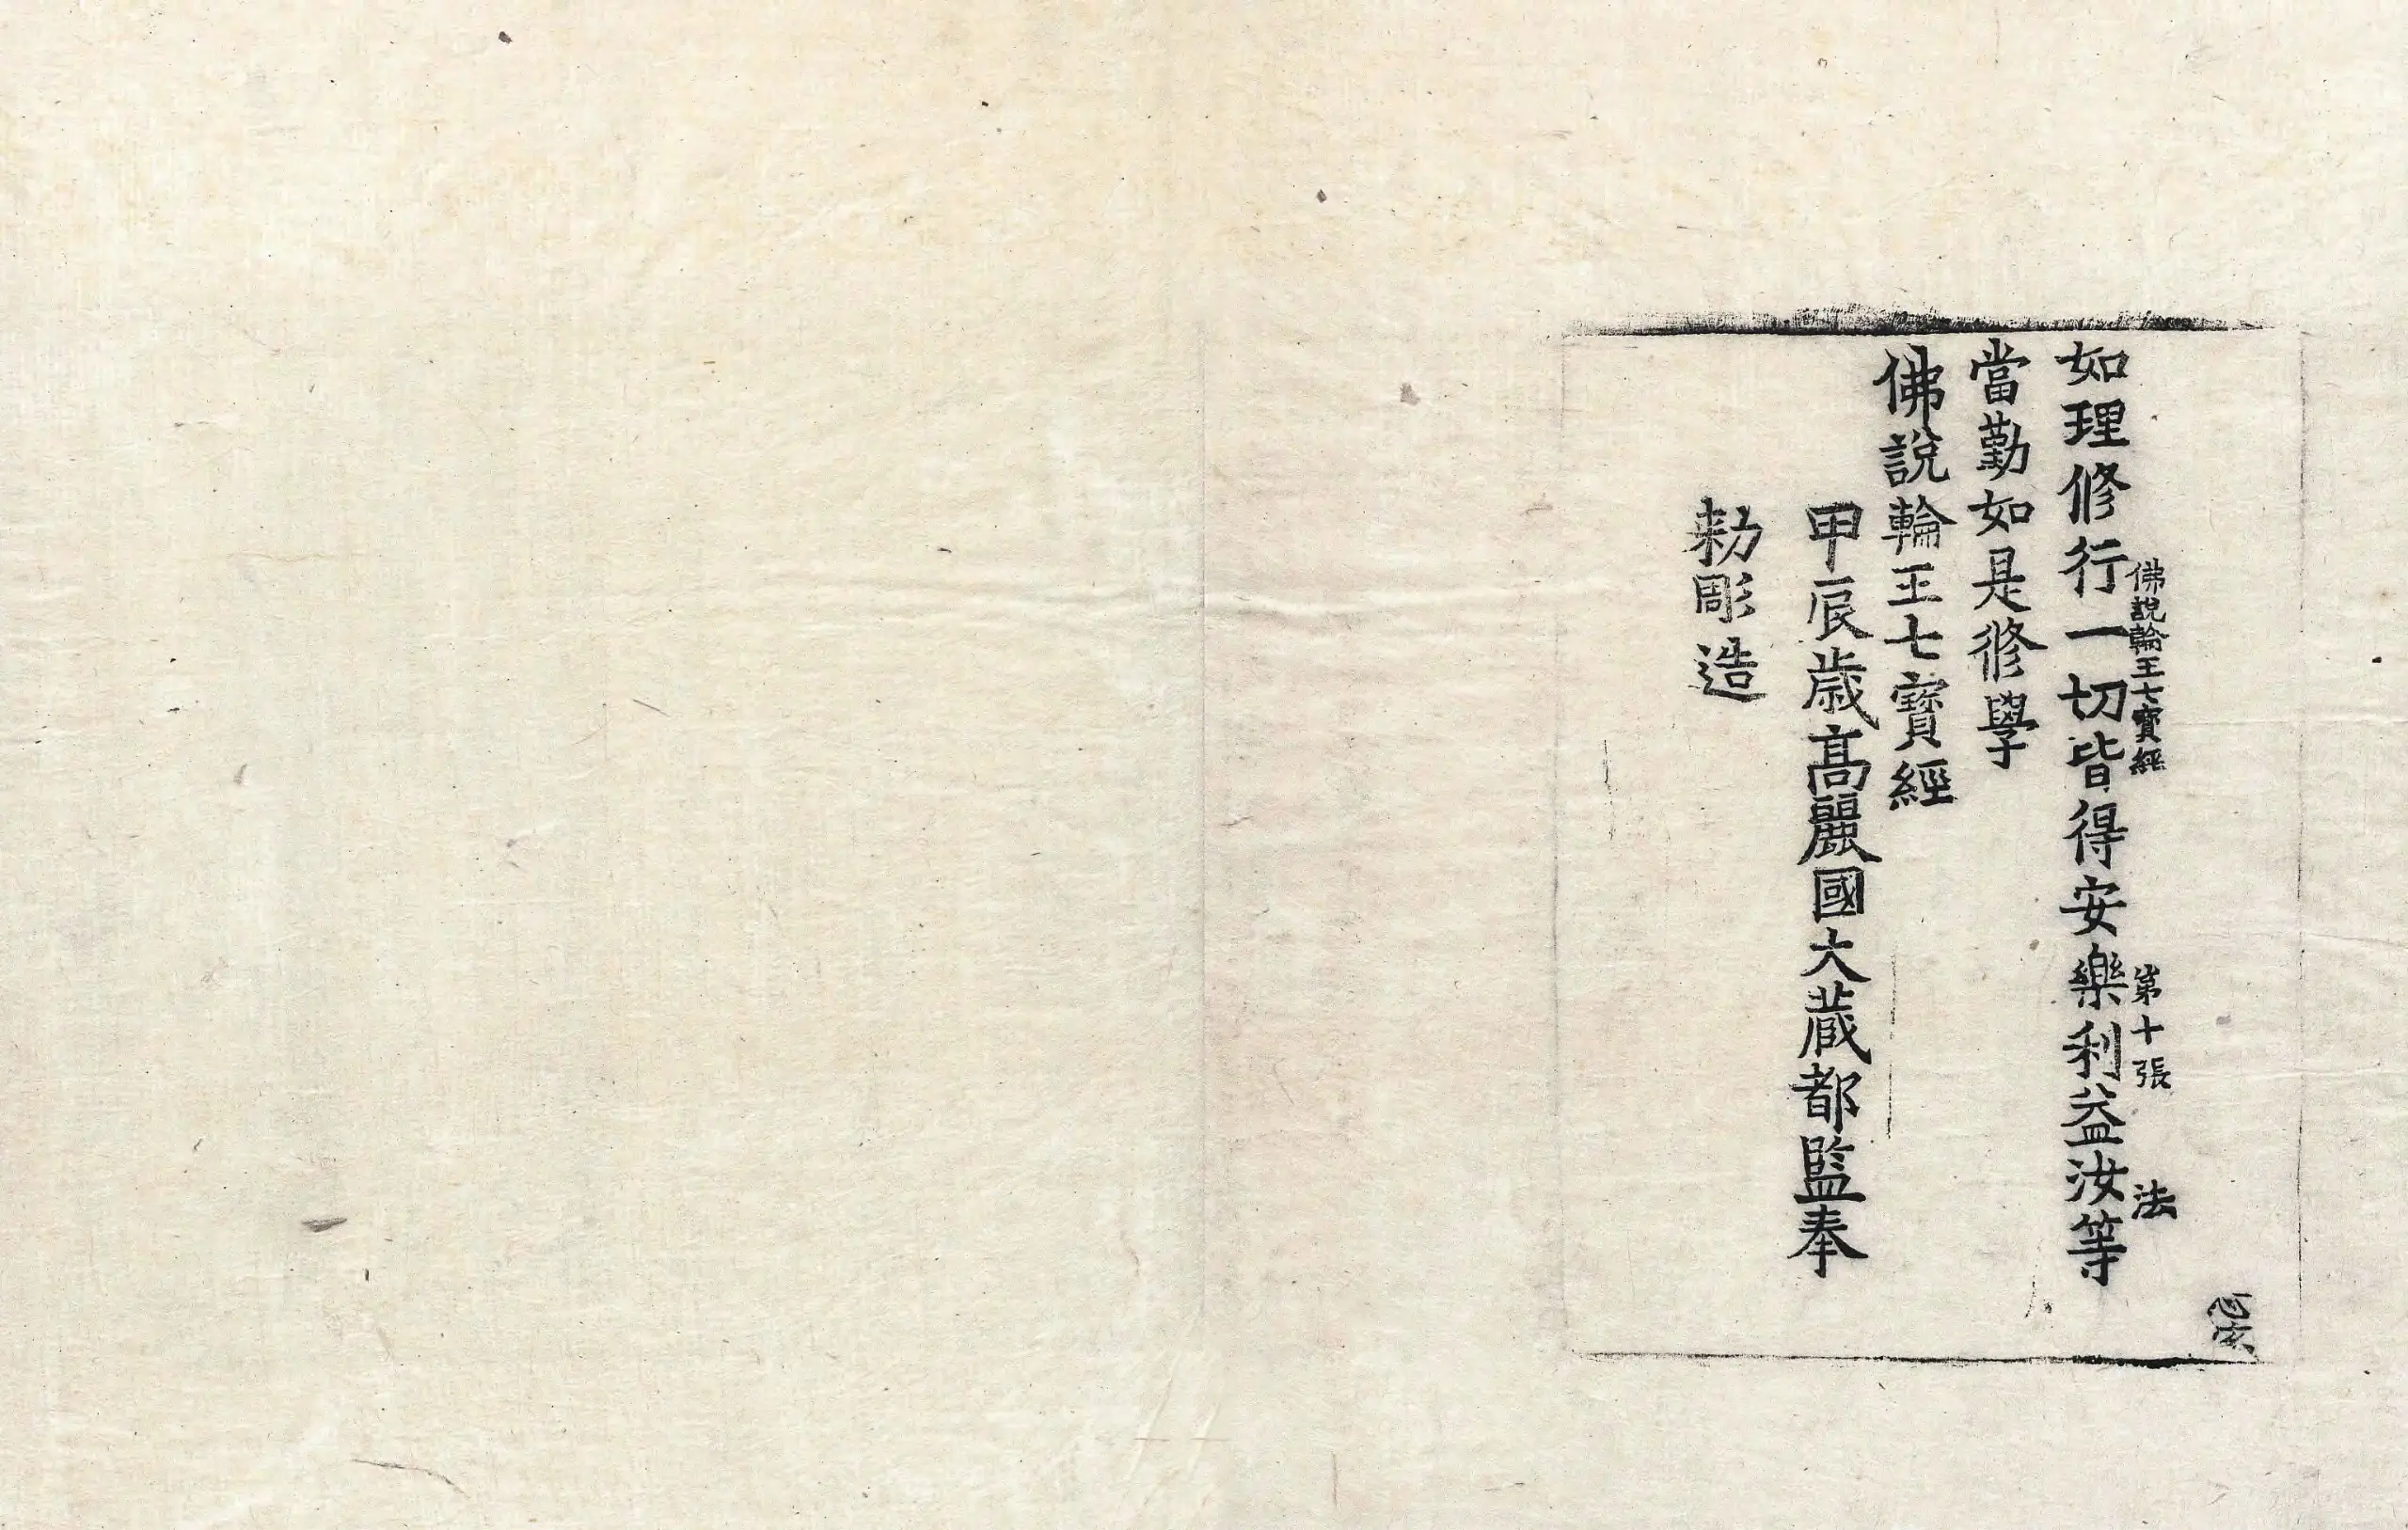 佛說輪王七寶經 第十張 法
如理修行一切皆得安樂利益汝等
當勤如是修學
佛說輪王七寶經
甲辰歲高麗國大藏都監奉
勅彫造